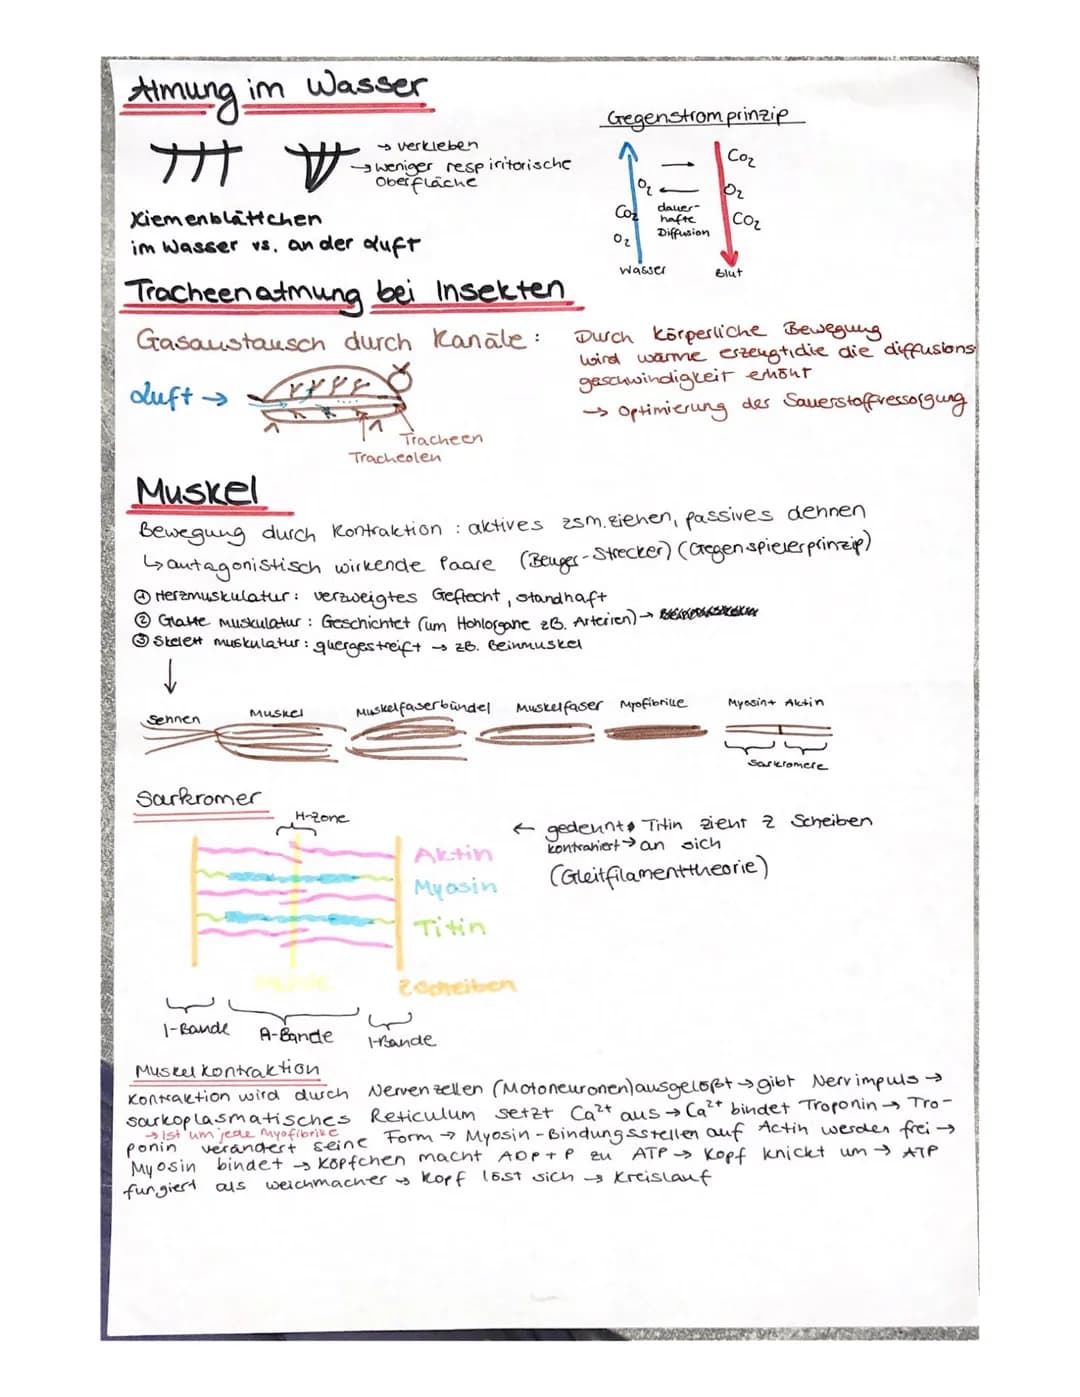 Atmung im Wasser
Gegenstromprinzip
→ verkleben
→ weniger respiritorische
Oberfläche
Kiemenblättchen
im Wasser vs. an der Luft
CO2
O2
O2
CO2
dauer-
hafte
Diffusion
CO2
O2
Wasser
Blut
Tracheenatmung bei Insekten
Gasaustausch durch Kanäle:
Durch körperliche Bewegung
wird wärme erzeugt, die die diffusions
geschwindigkeit erhöht
→ Optimierung der Sauerstoffversorgung
Luft →
Tracheen
Tracheolen
Muskel
Bewegung durch Kontraktion : aktives zsm.ziehen, passives dehnen
↳ antagonistisch wirkende Paare (Beuger-Strecker) (Gegenspielerprinzip)
① Herzmuskulatur: verzweigtes Geflecht, standhaft
② Glatte muskulatur : Geschichtet (um Hohlorgane zB. Arterien) →
③ Skelett muskulatur : quergestreift → zB. Beinmuskel
↓
Sehnen
Muskel
Muskelfaserbündel
Muskelfaser
Myofibrille
Myosin+ Aktin
Sarkromere
Sarkromer
H-Zone
Aktin
Myosin
Titin
Z Scheiben
← gedehnt, Titin zieht Z Scheiben
kontrahiert → an sich
(Gleitfilamenttheorie)
I-Bande
A-Bande
I-Bande
Muskelkontraktion
Kontraktion wird durch Nervenzellen (Motoneuronen) ausgelößt → gibt Nervimpuls →
sarkoplasmatisches Reticulum setzt Ca2+ aus → Ca2+ bindet Troponin → Tro-
→ Ist um jede Myofibrille
ponin verändert seine Form → Myosin-Bindungsstellen auf Actin werden frei →
Myosin bindet → Köpfchen macht ADP+P zu ATP → Kopf knickt um → ATP
fungiert als weichmacher → Kopf löst sich → Kreislauf